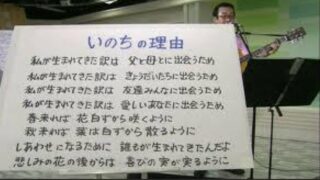 いのちの理由
私が生まれてきた訳は 父と母とに出会うため
私が生まれてきた訳は きょうだいたちに出会うため
私が生まれてきた訳は 友達みんなに出会うため
私が生まれてきた訳は 愛しいあなたに出会うため
春来れば 花自ずから咲くように
秋来れば 葉は自ずから散るように
しあわせになるために 誰もが生まれてきたんだよ
悲しみの花の後からは 喜びの実が実るように